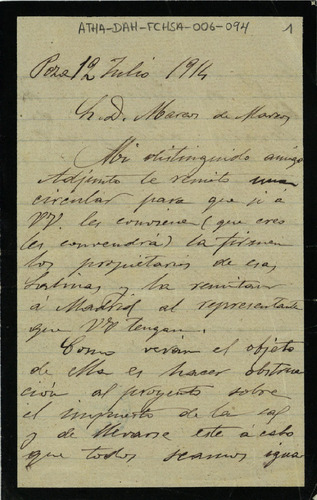 ATHA-DAH-FCHSA-006-094
1
Poza 12 Julio 1914
S. D. Marcos de Marcos
Mi distinguido amigo
Adjunto le remito una
circular para que si a
VV. les conviene (que creo
les convendrá) la firmen
los propietarios de esas
Salinas y la remitan
á Madrid al representante
que VV tengan.
Como verán el objeto
de ella es hacer obstruc
ción al proyecto sobre
el impuesto de la sal
y de llevarse este á cabo
que todos seamos igua